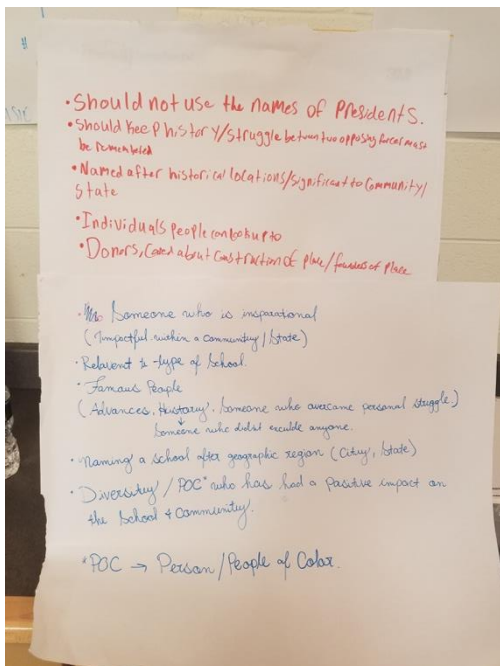 • Should not use the names of Presidents.
• Should Keep history/struggle between two opposing forces must
be remembeled
• Named after historical locations/significant to community/
state
• Individuals people can look up to
• Donors, cared about construction of place/founders of place
Someone who is inspirational
(Impactful within a community/State)
• Relavent to type of School.
• Famous People
(Advances, History. Someone who overcame personal struggle.)
↓
Someone who didn't exculde anyone.
• Naming a school after geographic region (City, State)
• Diversity / POC* who has had a positive impact on
the School & Community.
*POC → Person/People of Color.